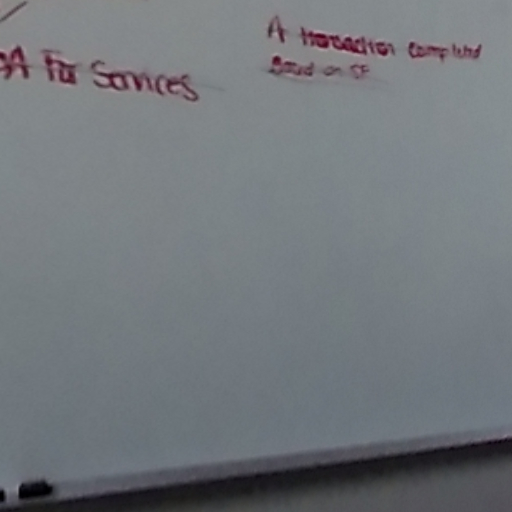 For Services
A transaction completed
Based on SF